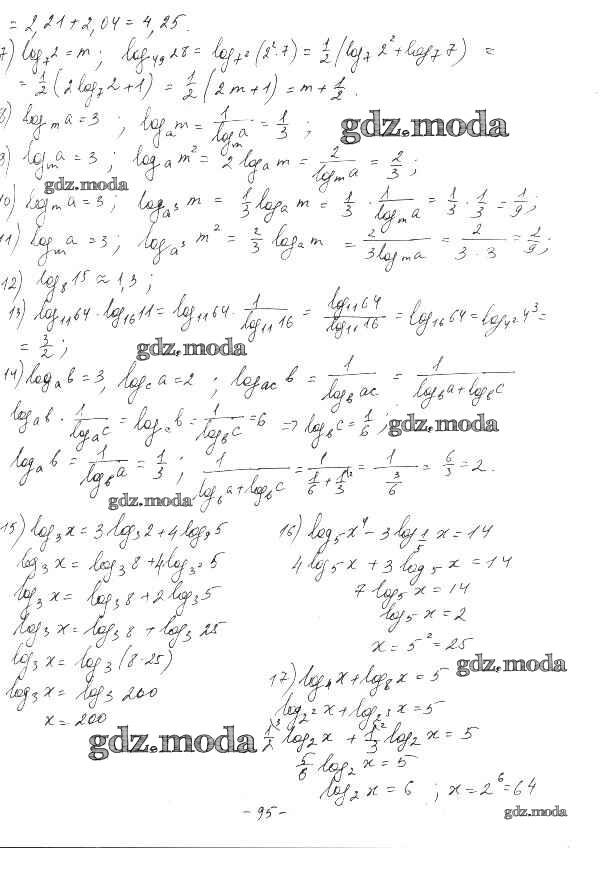 = 2,21+2,04 = 4,25.
7) log₇2 = m; log₄₉28 = log₇²(2²·7) = 1/2 (log₇2² + log₇7) =
= 1/2 (2log₇2+1) = 1/2 (2m+1) = m + 1/2.
8) logₘa = 3 ; logₐm = 1/logₘa = 1/3 ;
gdz.moda
9) logₘa = 3 ; logₐm² = 2logₐm = 2/logₘa = 2/3 ;
gdz.moda
10) logₘa = 3 ; logₐ³ m = 1/3 logₐm = 1/3 · 1/logₘa = 1/3 · 1/3 = 1/9 ;
11) logₘa = 3 ; logₐ³ m² = 2/3 logₐm = 2/3logₘa = 2/3·3 = 2/9 ;
12) log₈15 ≈ 1,3 ;
13) log₁₁64 · log₁₆11 = log₁₁64 · 1/log₁₁16 = log₁₁64/log₁₁16 = log₁₆64 = log₄²4³ =
= 3/2 ;
gdz.moda
14) logₐb = 3, log_c a = 2 ; log_ac b = 1/log_b ac = 1/log_b a + log_b c
logₐb · 1/logₐc = log_c b = 1/log_b c = 6 => log_b c = 1/6 ;
gdz.moda
logₐb = 1/log_b a = 1/3 ; 1/log_b a + log_b c = 1/1/6 + 1/3 = 1/3/6 = 6/3 = 2.
gdz.moda
15) log₃x = 3log₃2 + 4log₉5
log₃x = log₃8 + 4log₃²5
log₃x = log₃8 + 2log₃5
log₃x = log₃8 + log₃25
log₃x = log₃(8·25)
log₃x = log₃200
x = 200
gdz.moda
16) log₅x⁴ - 3log_1/5 x = 14
4log₅x + 3log₅x = 14
7log₅x = 14
log₅x = 2
x = 5² = 25
gdz.moda
17) log₄x + log₈x = 5
log₂²x + log₂³x = 5
1/2 log₂x + 1/3 log₂x = 5
5/6 log₂x = 5
log₂x = 6 ; x = 2⁶ = 64
- 95 -
gdz.moda